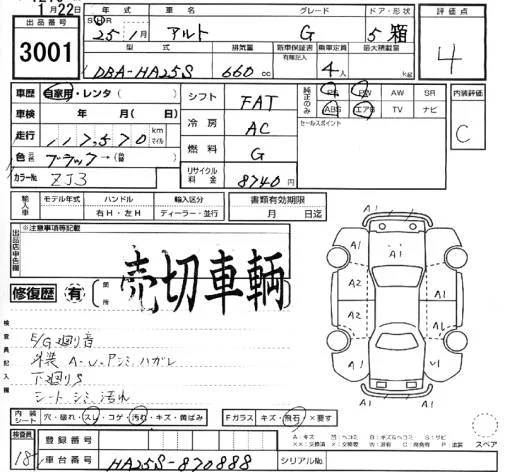 1月22日
出品番号
3001
年式 車名 グレード ドア・形状
25・1月 アルト G 5 箱
型式 排気量 新車保証書 有無記入 乗車定員 最大積載量
DBA-HA25S 660cc 4人 kg
評価点
4
車歴 自家用・レンタ( )
車検 年 月( )
走行 117,570 km マイル
色 元色 ブラック→(色替 )
カラーNo ZJ3
シフト FAT
冷房 AC
燃料 G
リサイクル料金 8740円
純正のみ PS PW AW SR
ABS エアB TV ナビ
セールスポイント
内装評価
C
輸入車 モデル年式 ハンドル 輸入区分
右H・左H ディーラー・並行
書類有効期限
月 日迄
出品店申告欄
※注意事項等記載
売切車輌
修復歴 有 箇所
検査員記入欄
E/G廻り音
外装 A-U-アンミハガレ
下廻りS
シートシミ汚れ
内装シート 穴・破れ・スレ・コゲ・汚れ・キズ・黄ばみ
Fガラス キズ・飛石 ×要す
検査員 18
登録番号
車台番号 HA25S-870888
シリアルNo
A1 A1
A1 A1 A1
A2 A1
A2 A1
A1 U1
A1 A1
スペア